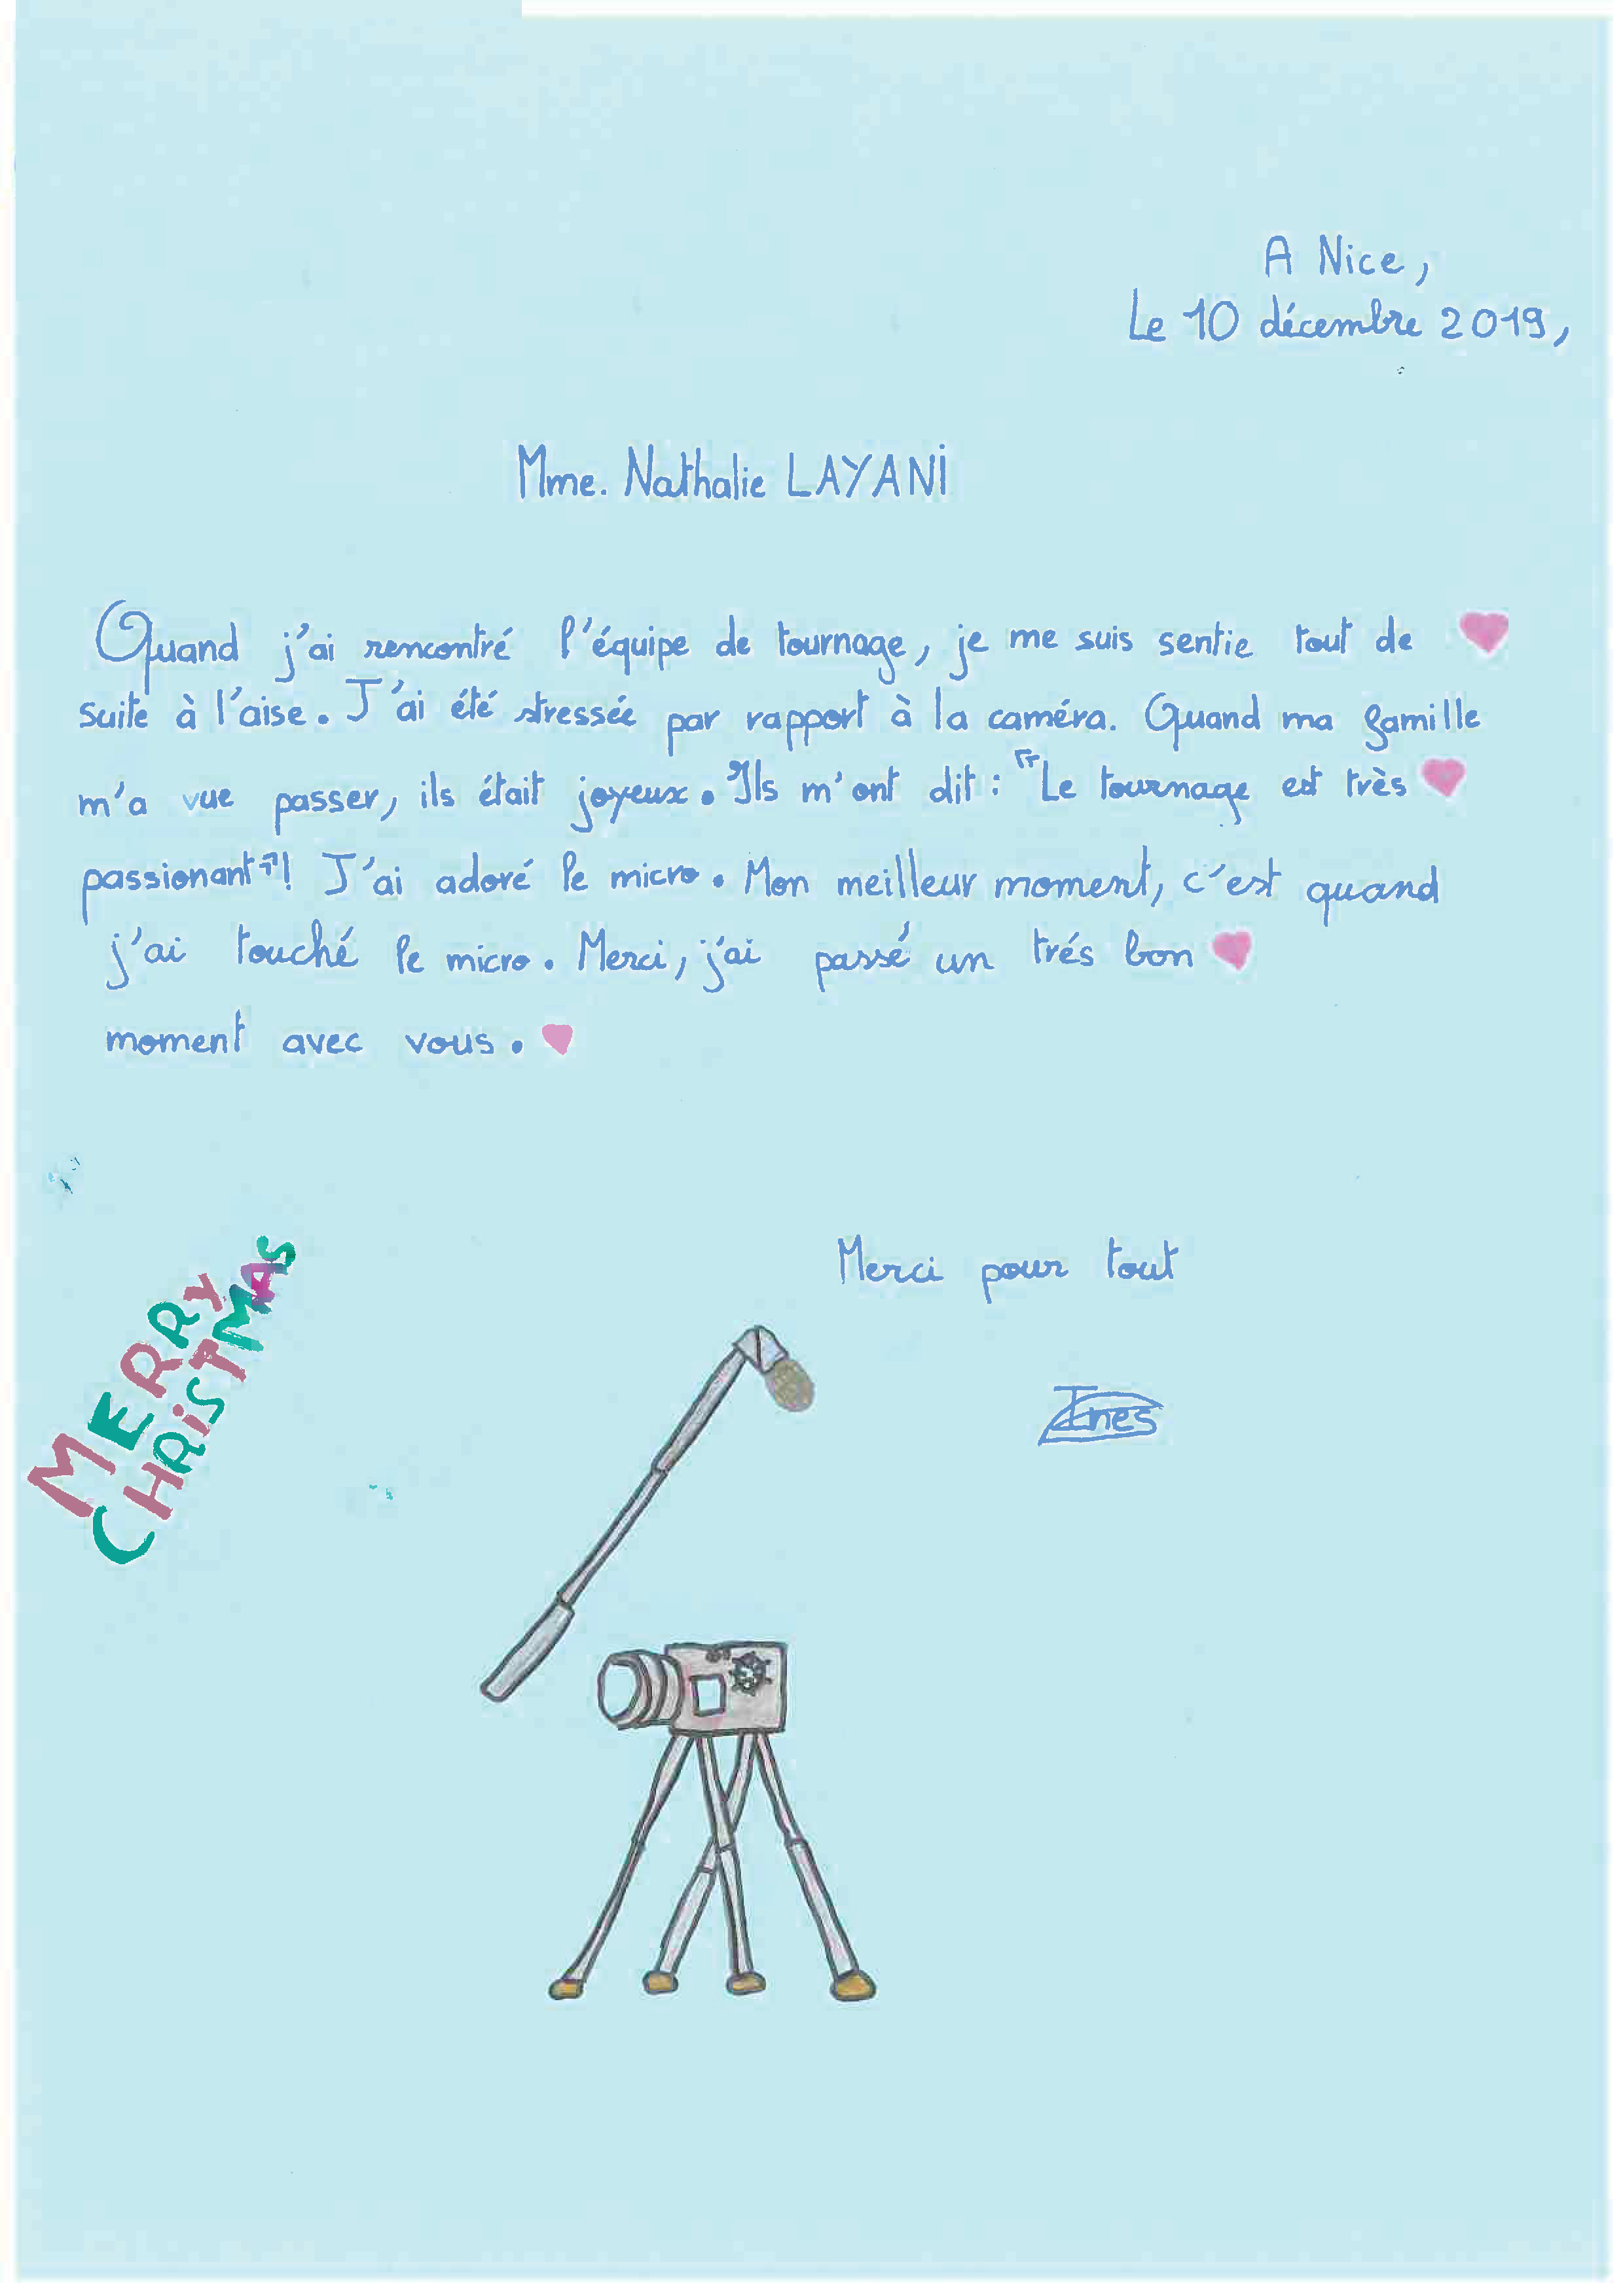 A Nice,
Le 10 décembre 2019,
Mme. Nathalie LAYANI
Quand j'ai rencontré l'équipe de tournage, je me suis sentie tout de
suite à l'aise. J'ai été stressée par rapport à la caméra. Quand ma famille
m'a vue passer, ils était joyeux. Ils m'ont dit : "Le tournage est très
passionant"! J'ai adoré le micro. Mon meilleur moment, c'est quand
j'ai touché le micro. Merci, j'ai passé un trés bon
moment avec vous.
Merci pour tout
Ines
MERRY
CHRISTMAS